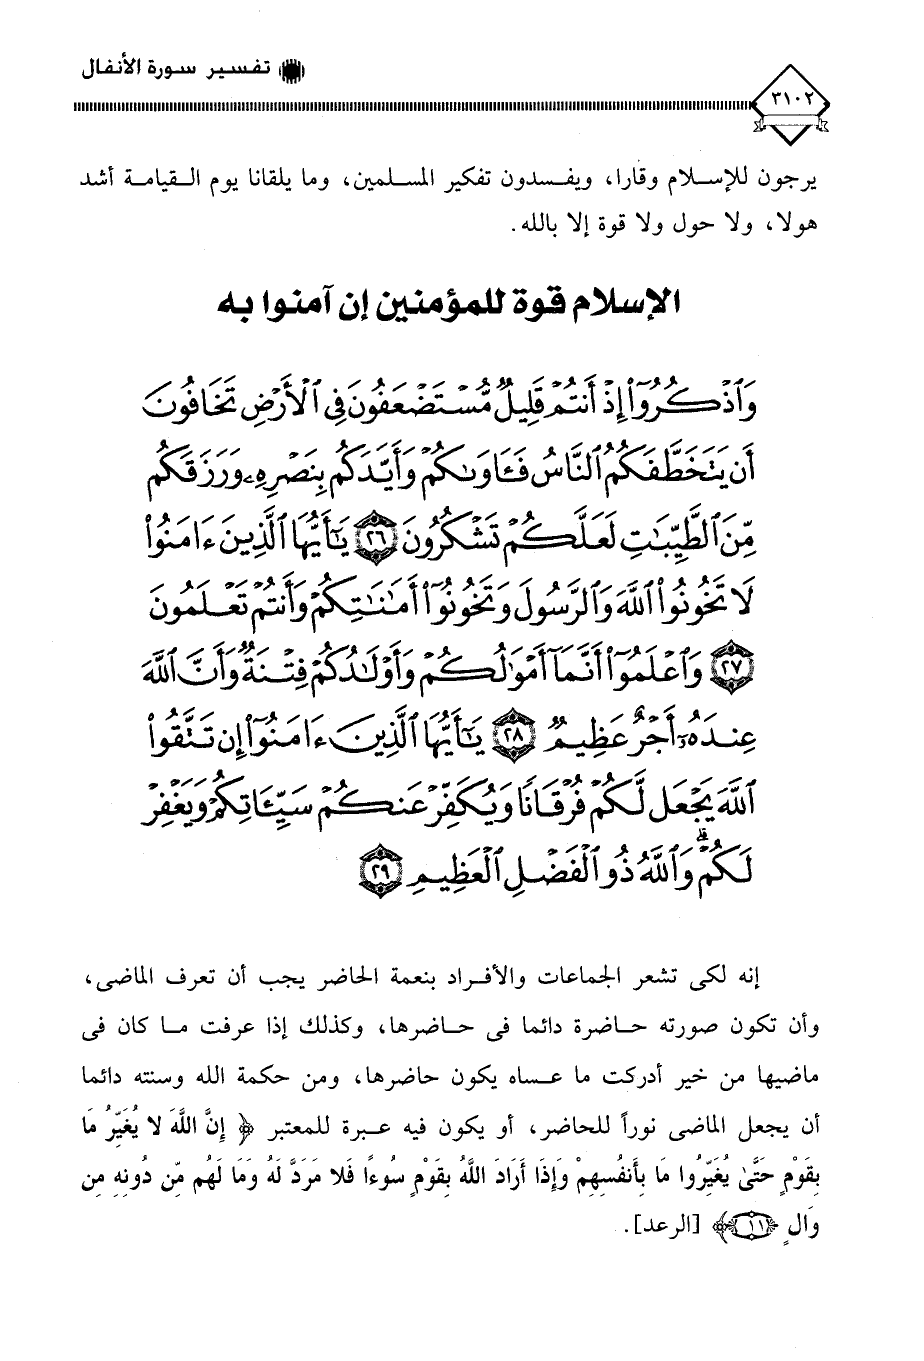 تفسير سورة الأنفال
٣١٠٢
يرجون للإسلام وقارا، ويفسدون تفكير المسلمين، وما يلقانا يوم القيامة أشد
هولا، ولا حول ولا قوة إلا بالله.
الإسلام قوة للمؤمنين إن آمنوا به
وَٱذْكُرُوٓا۟ إِذْ أَنتُمْ قَلِيلٌ مُّسْتَضْعَفُونَ فِى ٱلْأَرْضِ تَخَافُونَ
أَن يَتَخَطَّفَكُمُ ٱلنَّاسُ فَـَٔاوَىٰكُمْ وَأَيَّدَكُم بِنَصْرِهِۦ وَرَزَقَكُم
مِّنَ ٱلطَّيِّبَـٰتِ لَعَلَّكُمْ تَشْكُرُونَ ٢٦ يَـٰٓأَيُّهَا ٱلَّذِينَ ءَامَنُوا۟
لَا تَخُونُوا۟ ٱللَّهَ وَٱلرَّسُولَ وَتَخُونُوٓا۟ أَمَـٰنَـٰتِكُمْ وَأَنتُمْ تَعْلَمُونَ
٢٧ وَٱعْلَمُوٓا۟ أَنَّمَآ أَمْوَٰلُكُمْ وَأَوْلَـٰدُكُمْ فِتْنَةٌ وَأَنَّ ٱللَّهَ
عِندَهُۥٓ أَجْرٌ عَظِيمٌ ٢٨ يَـٰٓأَيُّهَا ٱلَّذِينَ ءَامَنُوٓا۟ إِن تَتَّقُوا۟
ٱللَّهَ يَجْعَل لَّكُمْ فُرْقَانًا وَيُكَفِّرْ عَنكُمْ سَيِّـَٔاتِكُمْ وَيَغْفِرْ
لَكُمْ ۗ وَٱللَّهُ ذُو ٱلْفَضْلِ ٱلْعَظِيمِ ٢٩
إنه لكى تشعر الجماعات والأفراد بنعمة الحاضر يجب أن تعرف الماضى،
وأن تكون صورته حاضرة دائما فى حاضرها، وكذلك إذا عرفت ما كان فى
ماضيها من خير أدركت ما عساه يكون حاضرها، ومن حكمة الله وسنته دائما
أن يجعل الماضى نوراً للحاضر، أو يكون فيه عبرة للمعتبر ﴿ إِنَّ اللَّهَ لا يُغَيِّرُ مَا
بِقَوْمٍ حَتَّىٰ يُغَيِّرُوا مَا بِأَنفُسِهِمْ وَإِذَا أَرَادَ اللَّهُ بِقَوْمٍ سُوءًا فَلا مَرَدَّ لَهُ وَمَا لَهُم مِّن دُونِهِ مِن
وَالٍ ١١﴾ [الرعد].